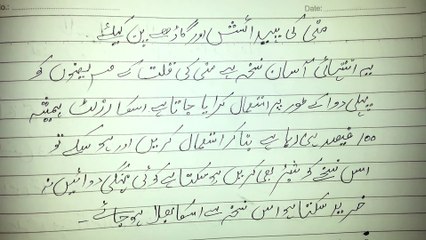 No.: Date:
منی کی پیدائش اور گاڑھے پن کیلئے۔
یہ انتہائی آسان نسخہ ہے منی کی قلت کے مریضوں کو
پہلی دوا کے طور پر استعمال کرایا جاتا ہے اسکا رزلٹ ہمیشہ
100 فیصد ہی رہا ہے بنا کر استعمال کریں اور ہو سکے تو
اس نسخے کو شیئر بھی کریں ہو سکتا ہے کوئی مہنگی دوائیں نہ
خرید سکتا ہو اس نسخہ سے اسکا بھلا ہو جائے۔